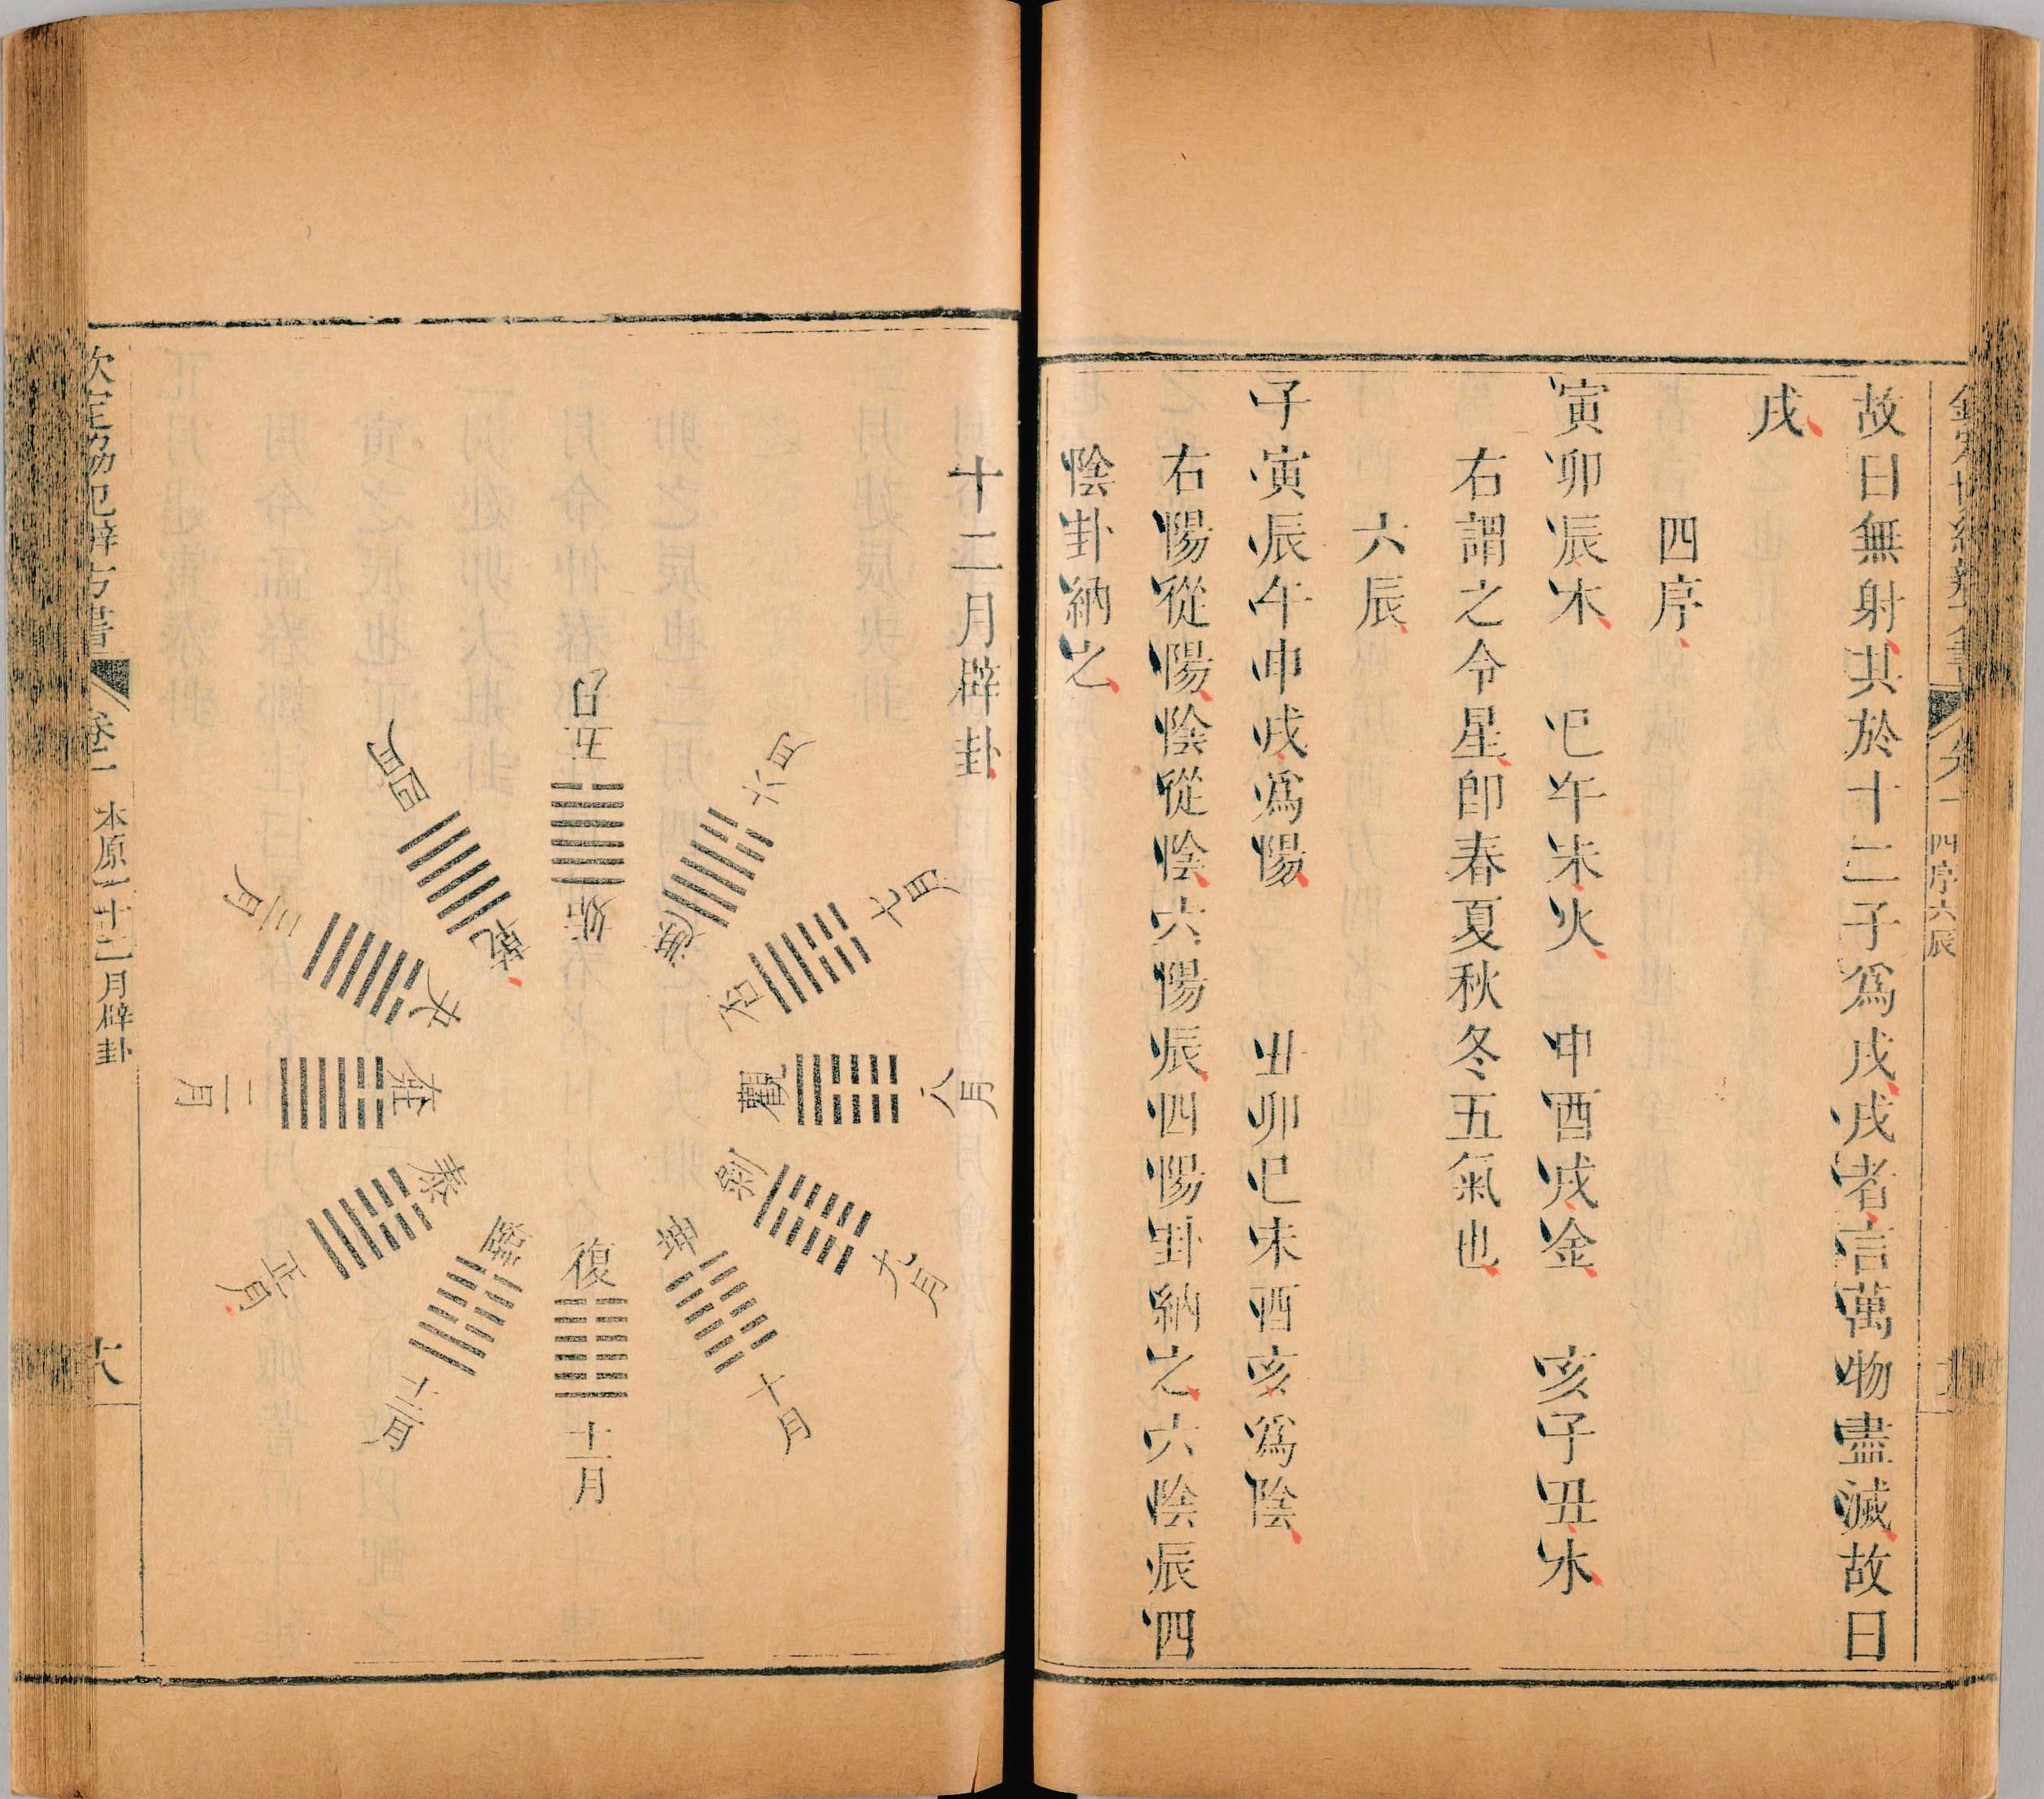 故曰無射其於十二子爲戌戌者言萬物盡滅故曰
戌
四序
寅卯辰木　巳午未火　申酉戌金　亥子丑水
右謂之令星卽春夏秋冬五氣也
六辰
子寅辰午申戌爲陽　丑卯巳未酉亥爲陰
右陽從陽陰從陰六陽辰四陽卦納之六陰辰四
陰卦納之
四序六辰
十二月辟卦
五月
姤
六月
遯
七月
否
八月
觀
九月
剝
十月
坤
十一月
復
十二月
臨
正月
泰
二月
壯
三月
夬
四月
乾
欽定協紀辨方書
卷一
本原一 十二月辟卦
六